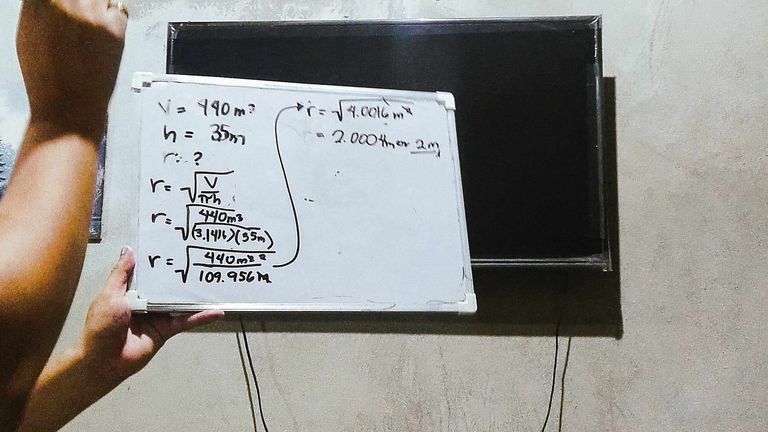 V = 440 m³
h = 35m
r = ?
r = √(V/πh)
r = √(440m³/(3.1416)(35m))
r = √(440m³ ²/109.956m)
r = √4.0016 m²
r = 2.0004m or 2m